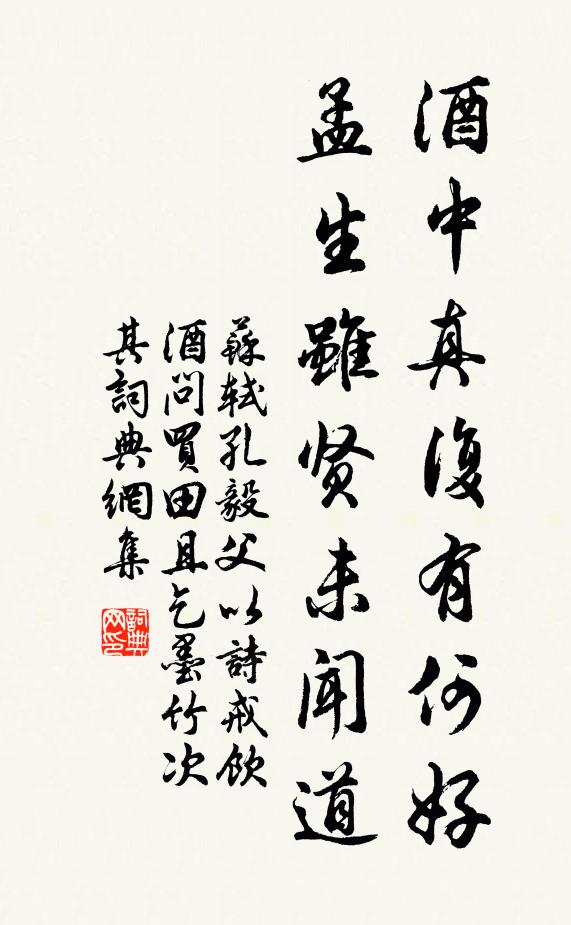 酒中真復有何好
孟生雖贤未闻道
蘇軾孔毅父以詩戒飲
酒問買田且乞墨竹次
其詞典網集
詞典
网印